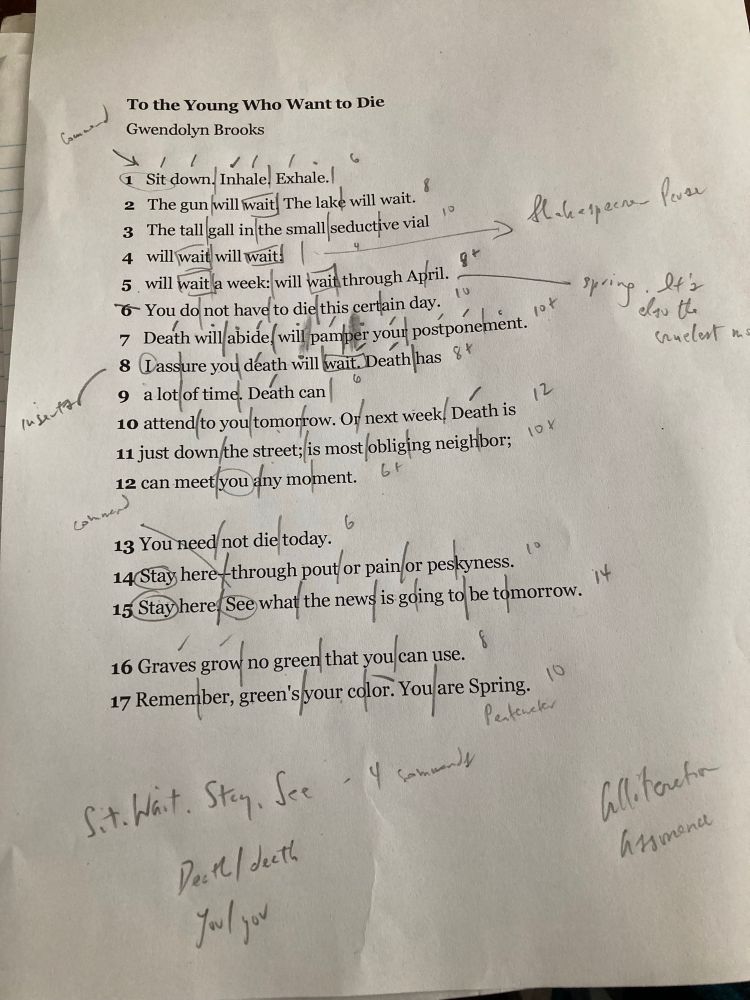 To the Young Who Want to Die
Command
Gwendolyn Brooks
1 Sit down. Inhale. Exhale. 6
2 The gun will wait. The lake will wait. 8
3 The tall gall in the small seductive vial 10
Shakespearean Pause
4 will wait will wait: 4
5 will wait a week: will wait through April. 8+
spring. It's
also the
cruelest
6 You do not have to die this certain day. 10
7 Death will abide, will pamper your postponement. 10+
8 I assure you death will wait. Death has 8+
9 a lot of time. Death can 6
10 attend to you tomorrow. Or next week. Death is 12
11 just down the street; is most obliging neighbor; 10+
12 can meet you any moment. 6+
Command
13 You need not die today. 6
14 Stay here--through pout or pain or peskyness. 10
15 Stay here. See what the news is going to be tomorrow. 14
16 Graves grow no green that you can use. 8
17 Remember, green's your color. You are Spring. 10
Pentameter
Sit. Wait. Stay. See - 4 commands
Alliteration
Assonance
Death/death
You/you